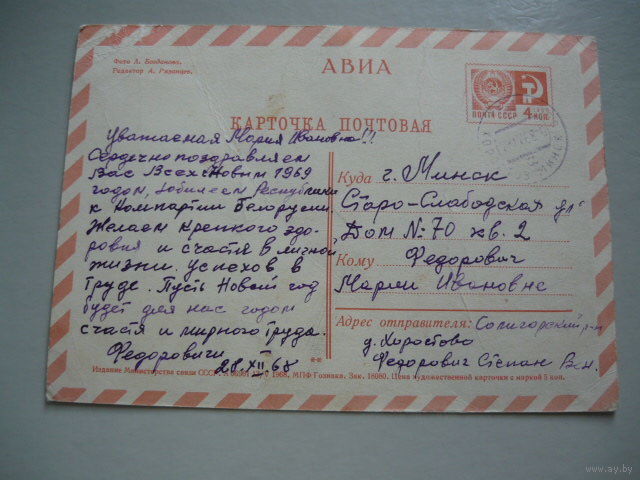 Фото Л. Богданова.
Редактор А. Рязанцев.
АВИА
ПОЧТА СССР
4 КОП.
КАРТОЧКА ПОЧТОВАЯ
Уважаемая Мария Ивановна!!
Сердечно поздравляем
Вас Всех Новым 1969
годом, юбилеем Республики
и Компартии Белорусии.
Желаем крепкого здо-
ровия и счастя в личной
жизни, успехов в
труде. Пусть Новый год
будет для нас годом
счастя и мирного труда.
Федоровичи
28.XII 68
Куда г. Минск
Старо-Слободская ул
Дом № 70 кв. 2
Кому Федорович
Марии Ивановне
Адрес отправителя: Солигорский р-н
д. Хоростово
Федорович Степан
Издание Министерства связи СССР. 1968. МПФ Гознака. Зак. 18080. Цена художественной карточки с маркой 5 коп.
www.ay.by